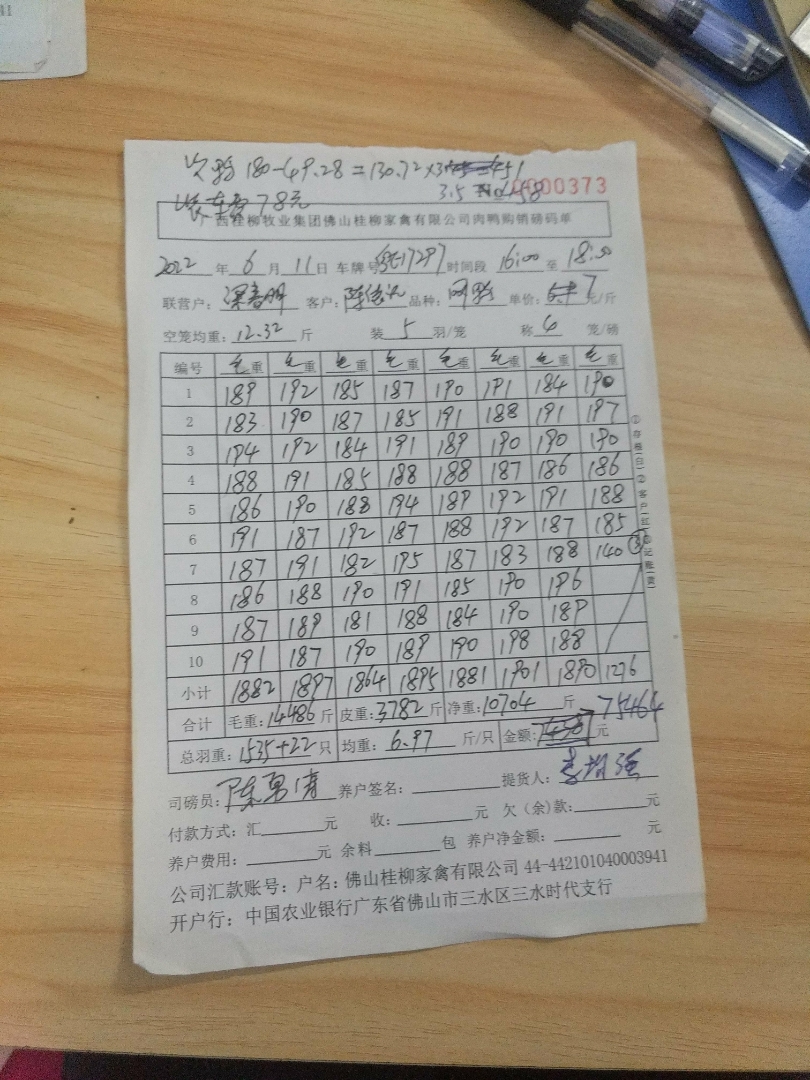 次鸭 180-49.28=130.72×3.5
458
收车费78元
0000373
广西桂柳牧业集团佛山桂柳家禽有限公司肉鸭购销磅码单
2022年6月11日 车牌号 17297 时间段 16:00 至 18:00
联营户: 客户: 品种: 单价: 7元/斤
空笼均重: 12.32 斤 装 5 羽/笼 称 6 笼/磅
编号 毛重 毛重 毛重 毛重 毛重 毛重 毛重 毛重
1 189 192 185 187 190 191 184 190
2 183 190 187 185 191 188 191 197
3 194 192 184 191 189 190 190 190
4 188 191 185 188 188 187 186 186
5 186 190 188 194 189 192 191 188
6 191 187 192 187 188 192 187 185
7 187 191 182 195 187 183 188 140 ③
8 186 188 190 191 185 190 196
9 187 189 181 188 184 190 189
10 191 187 190 189 190 198 188
小计 1882 1897 1864 1895 1881 1901 1890 1276
合计 毛重: 14486 斤 皮重: 3782 斤 净重: 10704 斤 75464
总羽重: 1535+22 只 均重: 6.97 斤/只 金额: 元
司磅员: 陈勇清 养户签名: 提货人:
付款方式: 汇 元 收: 元 欠(余)款: 元
养户费用: 元 余料 包 养户净金额: 元
公司汇款账号: 户名: 佛山桂柳家禽有限公司 44-442101040003941
开户行: 中国农业银行广东省佛山市三水区三水时代支行
①存根(白)②客户(红)③记账(黄)